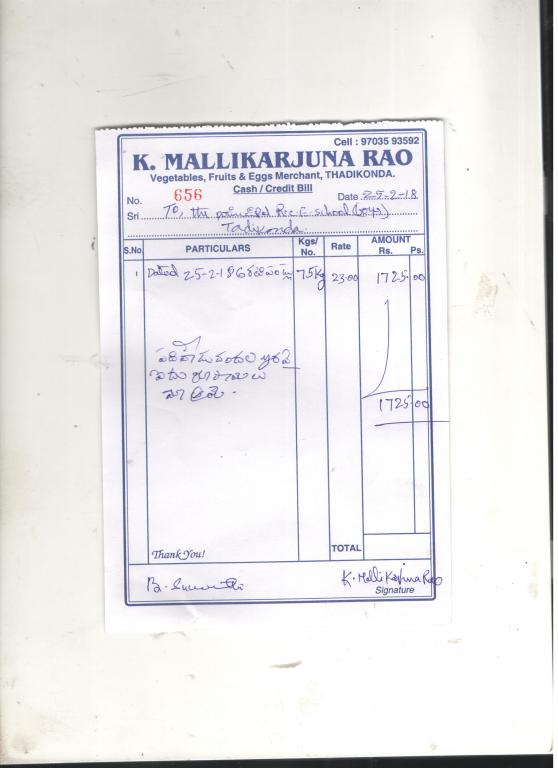 Cell : 97035 93592
K. MALLIKARJUNA RAO
Vegetables, Fruits & Eggs Merchant, THADIKONDA.
Cash / Credit Bill
No. 656 Date 25-2-18
Sri To, the principal R.C.E. school (boys)
Tadikonda
S.No. PARTICULARS Kgs/ No. Rate AMOUNT Rs. Ps.
1 Dated 25-2-18 75kg 23-00 1725-00
1725-00
Thank You!
TOTAL
K. Malli Karjuna Rao
Signature